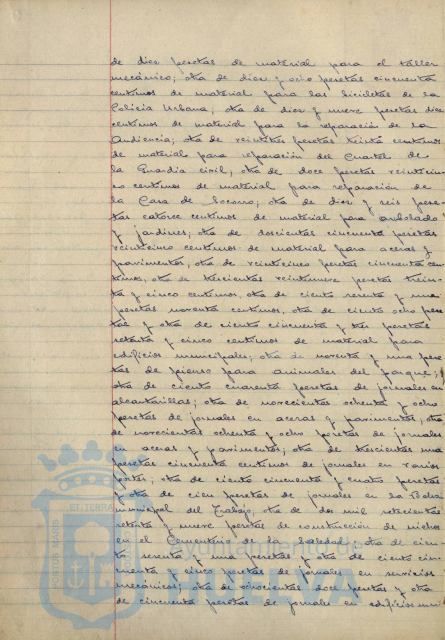 de diez pesetas de material para el taller
mecánico; otra de diez y ocho pesetas cincuenta
centimos de material para las bicicletas de la
Policia Urbana, otra de diez y nueve pesetas diez
centimos de material para la reparación de la
Audiencia; otra de veintitres pesetas treinta centimos
de material para reparación del Cuartel de
la Guardia civil, otra de doce pesetas veinticin-
co centimos de material para reparación de
la Casa de Socorro; otra de diez y seis pese-
tas catorce centimos de material para arbolado
y jardines; otra de doscientas cincuenta pesetas
veinticinco centimos de material para aceras y
pavimentos, otra de veinticinco pesetas cincuenta cen-
timos, otra de trescientas veintinueve pesetas trein-
ta y cinco centimos, otra de ciento setenta y una
pesetas noventa centimos, otra de ciento ocho pese-
tas y otra de ciento cincuenta y tres pesetas
setenta y cinco centimos de material para
edificios municipales; otra de noventa y una pese-
tas de pienso para animales del parque;
otra de ciento cuarenta pesetas de jornales en
alcantarillas; otra de novecientas ochenta y ocho
pesetas de jornales en aceras y pavimentos, otra
de novecientas ochenta y ocho pesetas de jornales
en aceras y pavimentos; otra de trescientas una
pesetas cincuenta centimos de jornales en varios
; otra de ciento cincuenta y cuatro pesetas
y otra de cien pesetas de jornales en la Bolsa
municipal del Trabajo, otra de dos mil setecientas
setenta y nueve pesetas de construcción de nichos
en el Cementerio de la Soledad; otra de cien-
to setenta y una pesetas y otra de ciento cin-
cuenta y cinco pesetas de jornales en servicios
mecánicos; otra de ochocientas doce pesetas y otra
de cincuenta pesetas de jornales en edificios mu-
PORTUS MARIS
ET TERRAE
Ayuntamiento de
HUELVA